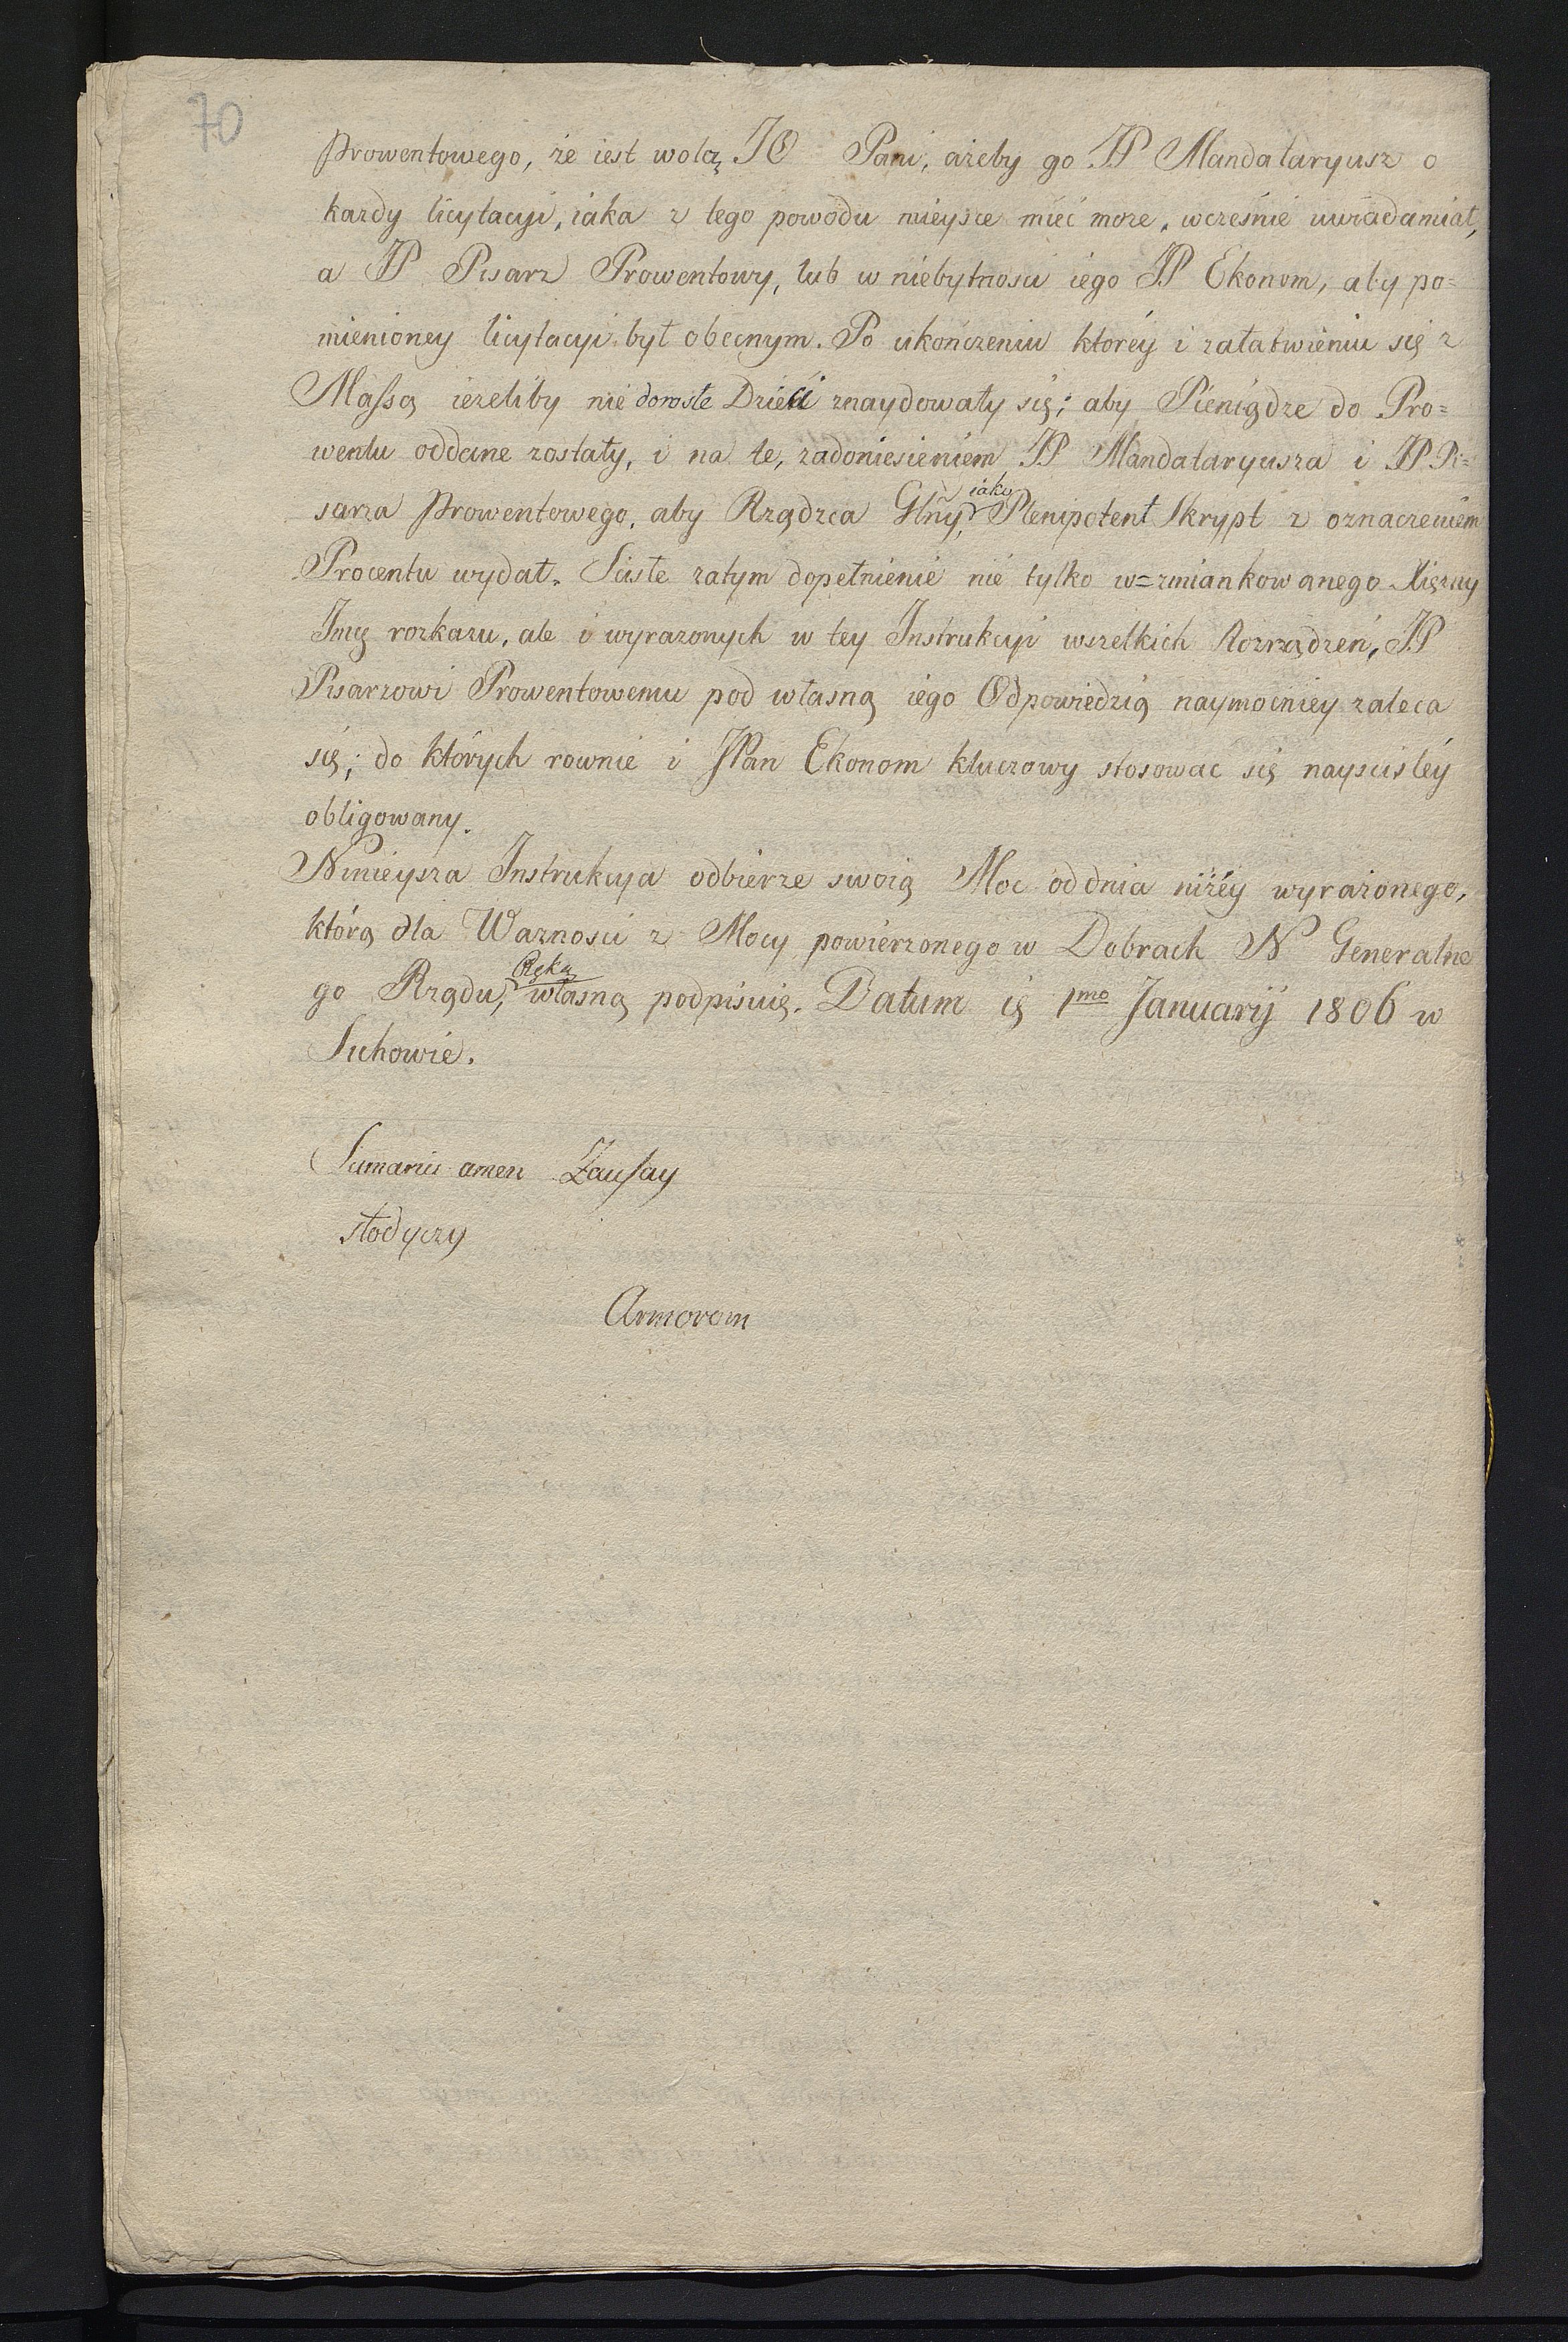 70
Prowentowego, że iest wolą JO Pani, ażeby go JP Mandataryusz o
kazdy licytacyi, iaka z tego powodu mieysce mieć może, wcześnie uwiadamiał,
a JP Pisarz Prowentowy, lub w niebytnosci iego JP Ekonom, aby po=
mienioney licytacyi był obecnym. Po ukończeniu któréy i załatwieniu się z
Massą ieżeliby nie dorosłe Dzieci znaydowały się; aby Pieniądze do Pro=
wentu oddane zostały, i na te, zadoniesieniem JP Mandataryusza i JP Pi=
sarza Prowentowego, aby Rządzca Glny, iako Plenipotent Skrypt z oznaczeniem
Procentu wydał. Scisłe zatym dopełnienie nie tylko w=zmiankowanego Xiężny
Jmę rozkazu, ale i wyrazonych w tey Instrukcyi wszelkich Rozrządzeń, JP
Pisarzowi Prowentowemu pod własną iego Odpowiedzią naymocniey zaleca
się; do których rownie i JPan Ekonom kluczowy stosowac się nayscisléy
obligowany.
Ninieysza Instrukcya odbierze swoią Moc od dnia niżéy wyrażonego,
którą dla Waznosci z Mocy powierzonego w Dobrach N Generalne
go Rządu, Ręką własną podpisuię. Datum ię 1mo Januarij 1806 w
Sichowie.
amen
słodyczy
Armorom